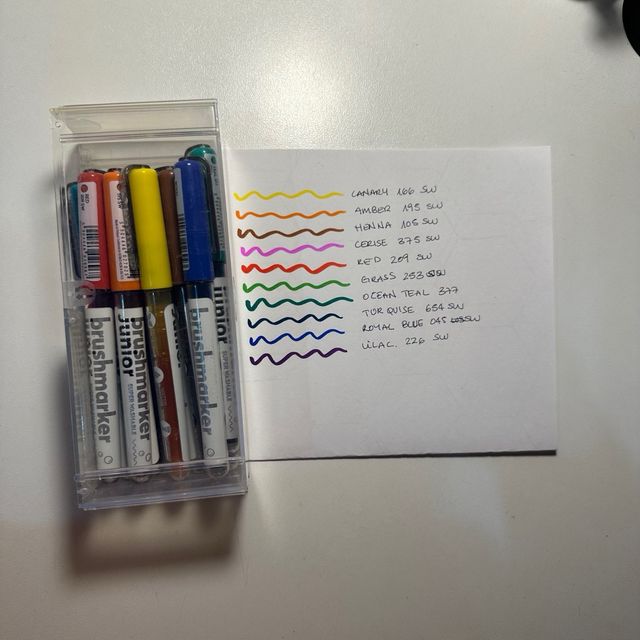 CANARY 166 SW
AMBER 195 SW
HENNA 105 SW
CERISE 375 SW
RED 209 SW
GRASS 253 SW
OCEAN TEAL 377
TURQUISE 654 SW
ROYAL BLUE 045 SW
LILAC. 226 SW
RED
brushmarker
Junior
brushmarker
SUPER WASHABLE
brushmarker
Junior